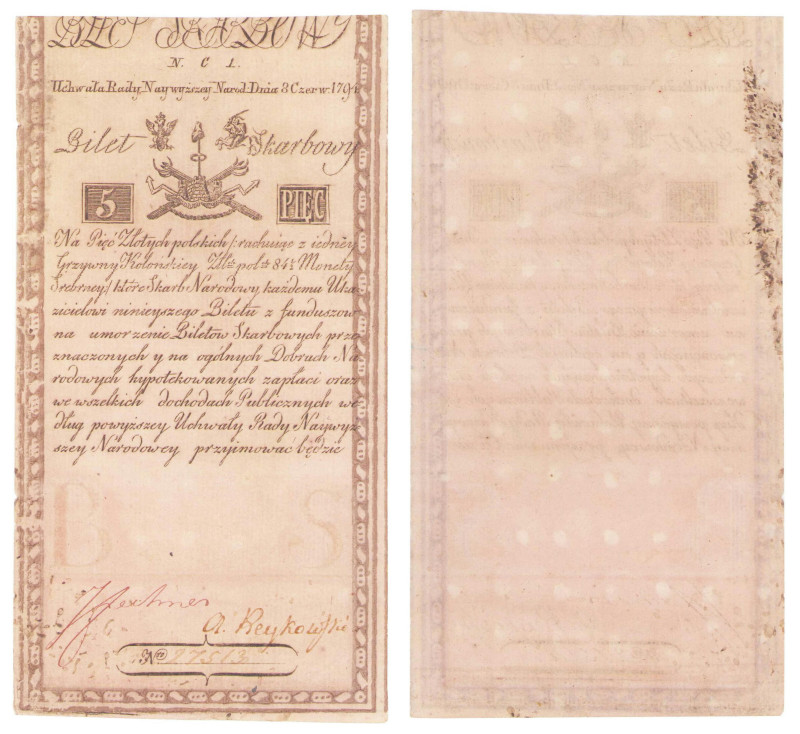 BILET SKARBOWY
N. C 1.
Uchwała Rady Naywyższey Narod: Dnia 8 Czerw: 1794
Bilet Skarbowy
5 PIĘĆ
Na Pięć Złotych polskich /: rachuiąc z iedney
Grzywny Kolońskiey Złł: pol: 84½ Monety
Srebrney:/ które Skarb Narodowy każdemu Uka-
zicielowi ninieyszego Biletu z funduszow
na umorzenie Biletów Skarbowych prze-
znaczonych y na ogólnych Dobrach Na
rodowych hypotekowanych zapłaci oraz
we wszelkich dochodach Publicznych we-
dług powyższey Uchwały Rady Naywyż
szey Narodowey przyjmować będzie
B S
A. Reykowski
Nro 27513